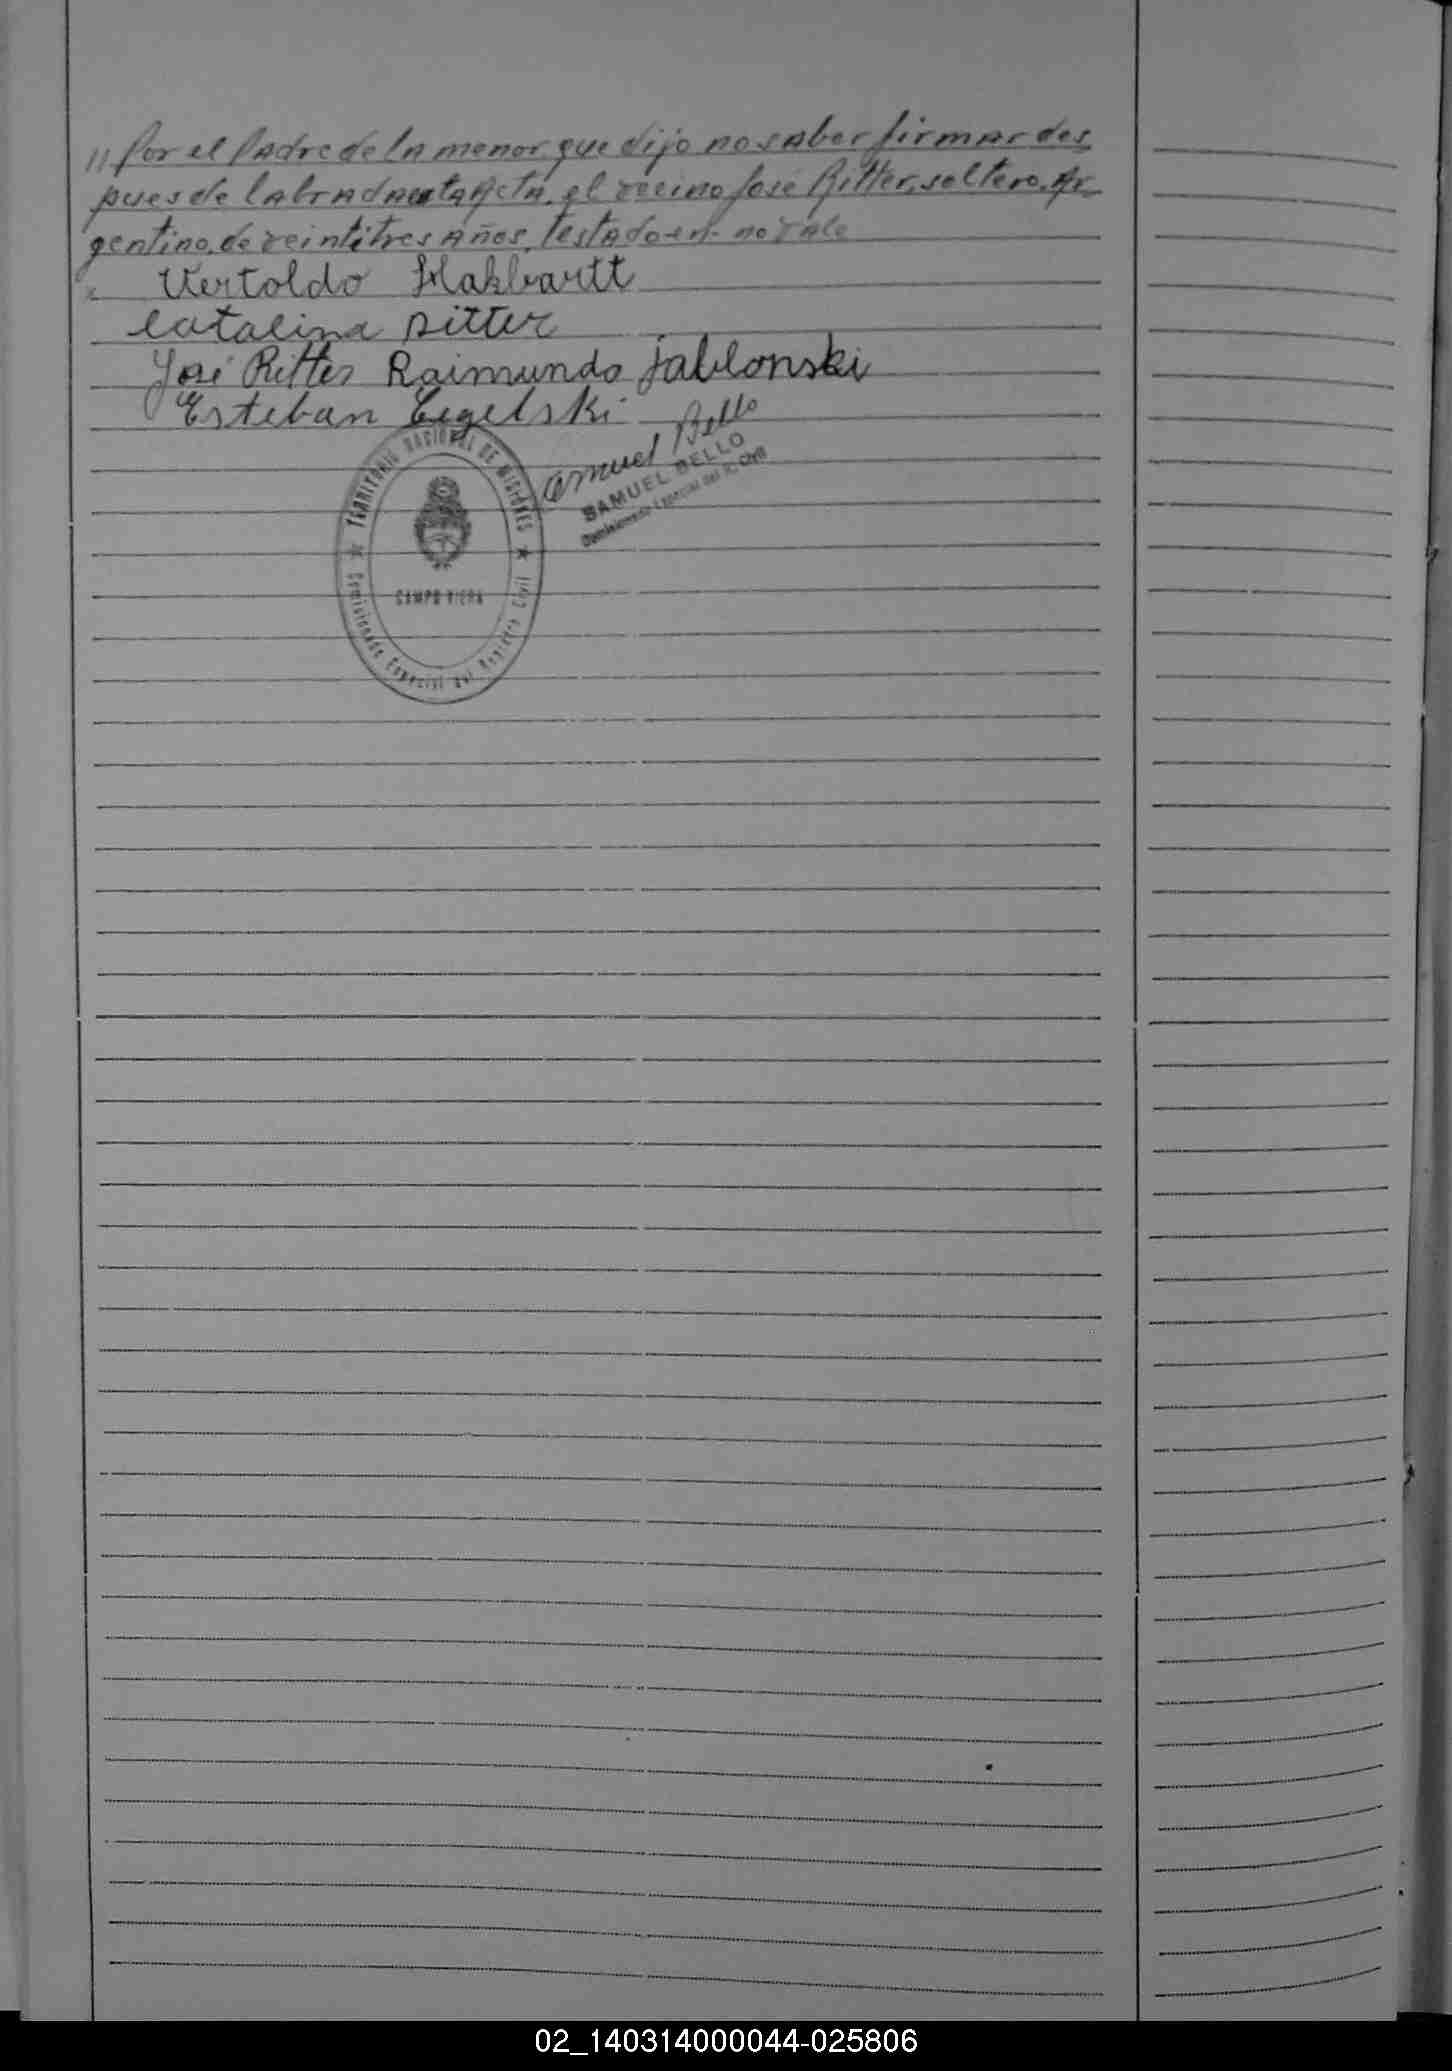 // Por el Padre de la menor que dijo no saber firmar des
pues de labrada esta Acta, el vecino José Ritter, soltero, Ar-
gentino, de veintitres Años, testado-en- no vale
Vertoldo Hakbartt
Catalina Ritter
José Ritter Raimundo Jablonski
Esteban Cegelski
Samuel Bello
SAMUEL BELLO
Comisionado Especial del R. Civil
TERRITORIO NACIONAL DE MISIONES
CAMPO VIERA
Comisionado Especial del Registro Civil
02_140314000044-025806